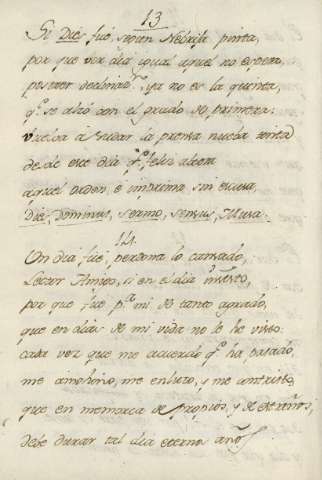 13
Si Dies fué, segun Nebrija pinta,
por que ver dia igual aquel no espera,
ya no es la quinta,
qe. se alzó con el grado de primera:
Vuelva á sudar la prensa nueba tinta
desde este dia qe. feliz
aquel orden, é imprima sin escusa,
Dies, Dominus, sermo, sensus, Musa.
14.
Un dia fué, perdona lo cansado,
Lector Amigo, si en el dia insisto,
por que fue pa. mi de tanto agrado,
que en dias de mi vida no le he visto:
cada vez que me acuerdo qe. ha pasado,
me amohino, me enluto, y me contristo,
que en memoria de propios, y de extraños,
debe durar tal dia eternos años